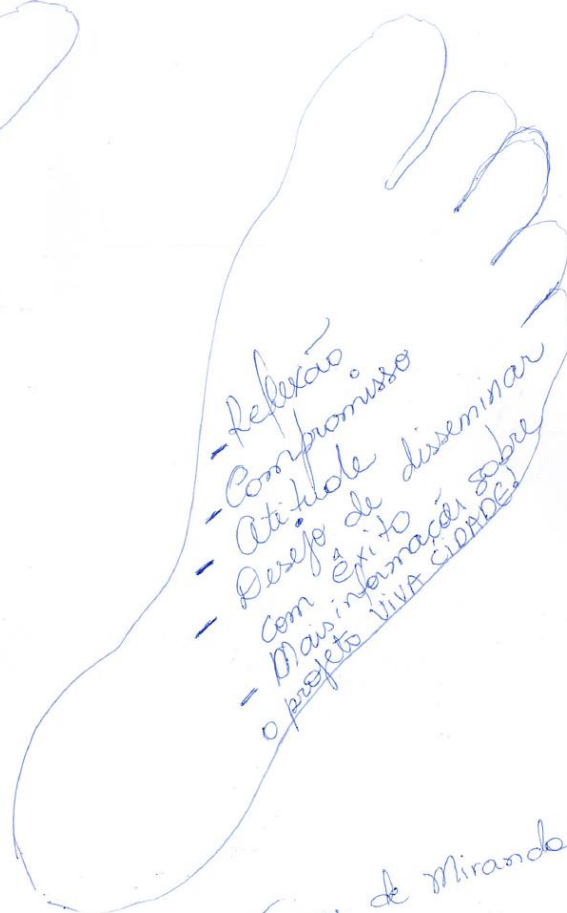 - Reflexão
- Compromisso
- Atitude
- Desejo de disseminar
com êxito
- Mais informações sobre
o projeto VIVA CIDADE!
de Miranda